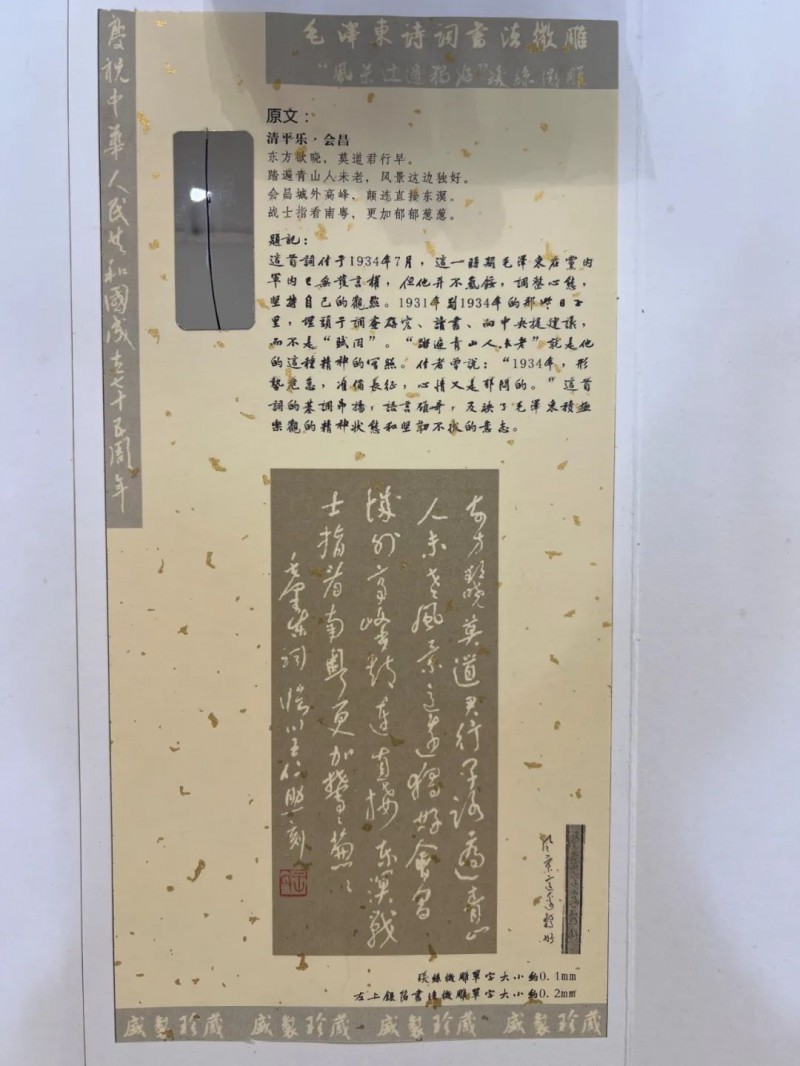 毛澤東詩詞書法微雕
“風景这邊獨好”碳絲微雕
慶祝中華人民共和國成立七十五周年
原文：
清平乐·会昌
东方欲晓，莫道君行早。
踏遍青山人未老，风景这边独好。
会昌城外高峰，颠连直接东溟。
战士指看南粤，更加郁郁葱葱。
题記：
這首詞作于1934年7月，這一時期毛澤東在黨内
軍内已無發言權，但他并不氣餒，調整心態，
堅持自己的觀點。1931年到1934年的那些日子
里，埋頭于調查研究、讀書、向中央提建議，
而不是“賦閑”。“踏遍青山人未老”就是他
的這種精神的寫照。作者曾説：“1934年，形
勢危急，准備長征，心情又是郁悶的。”這首
詞的基調昂揚，語言雄奇，反映了毛澤東積極
樂觀的精神狀態和堅韌不拔的意志。
东方欲晓莫道君行早踏遍青山
人未老风景这边独好会昌
城外高峰颠连直接东溟战
士指看南粤更加郁郁葱葱
毛泽东词 临川王仁熙刻
风景这边独好
碳絲微雕單字大小約0.1mm
左上銀箔書法微雕單字大小約0.2mm
盛製珍蔵 盛製珍蔵 盛製珍蔵 盛製珍蔵